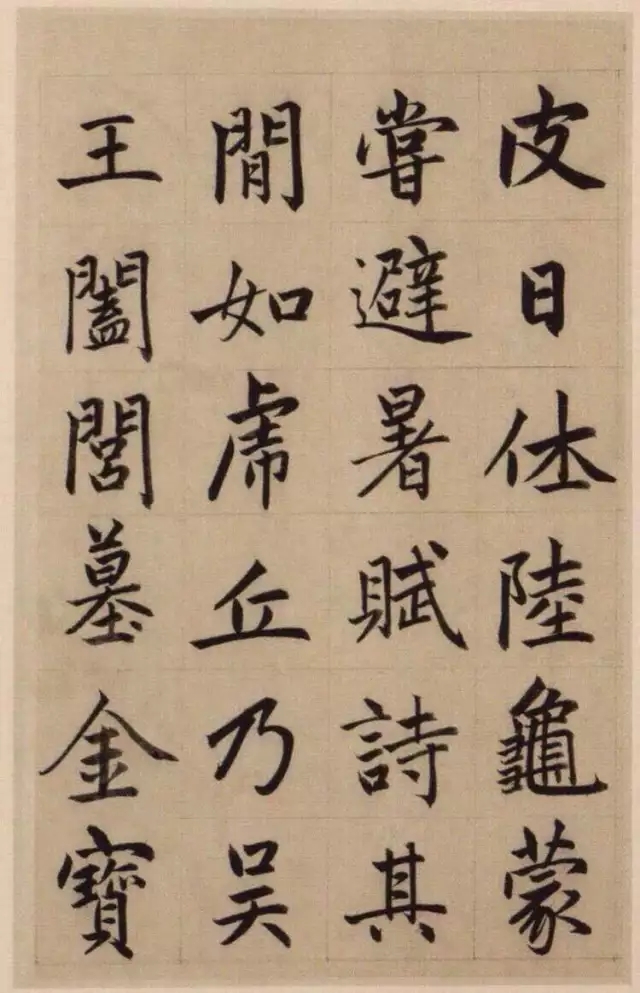 皮日休陸龜蒙
嘗避暑賦詩其
閒如虎丘乃吴
王闔閭墓金寶